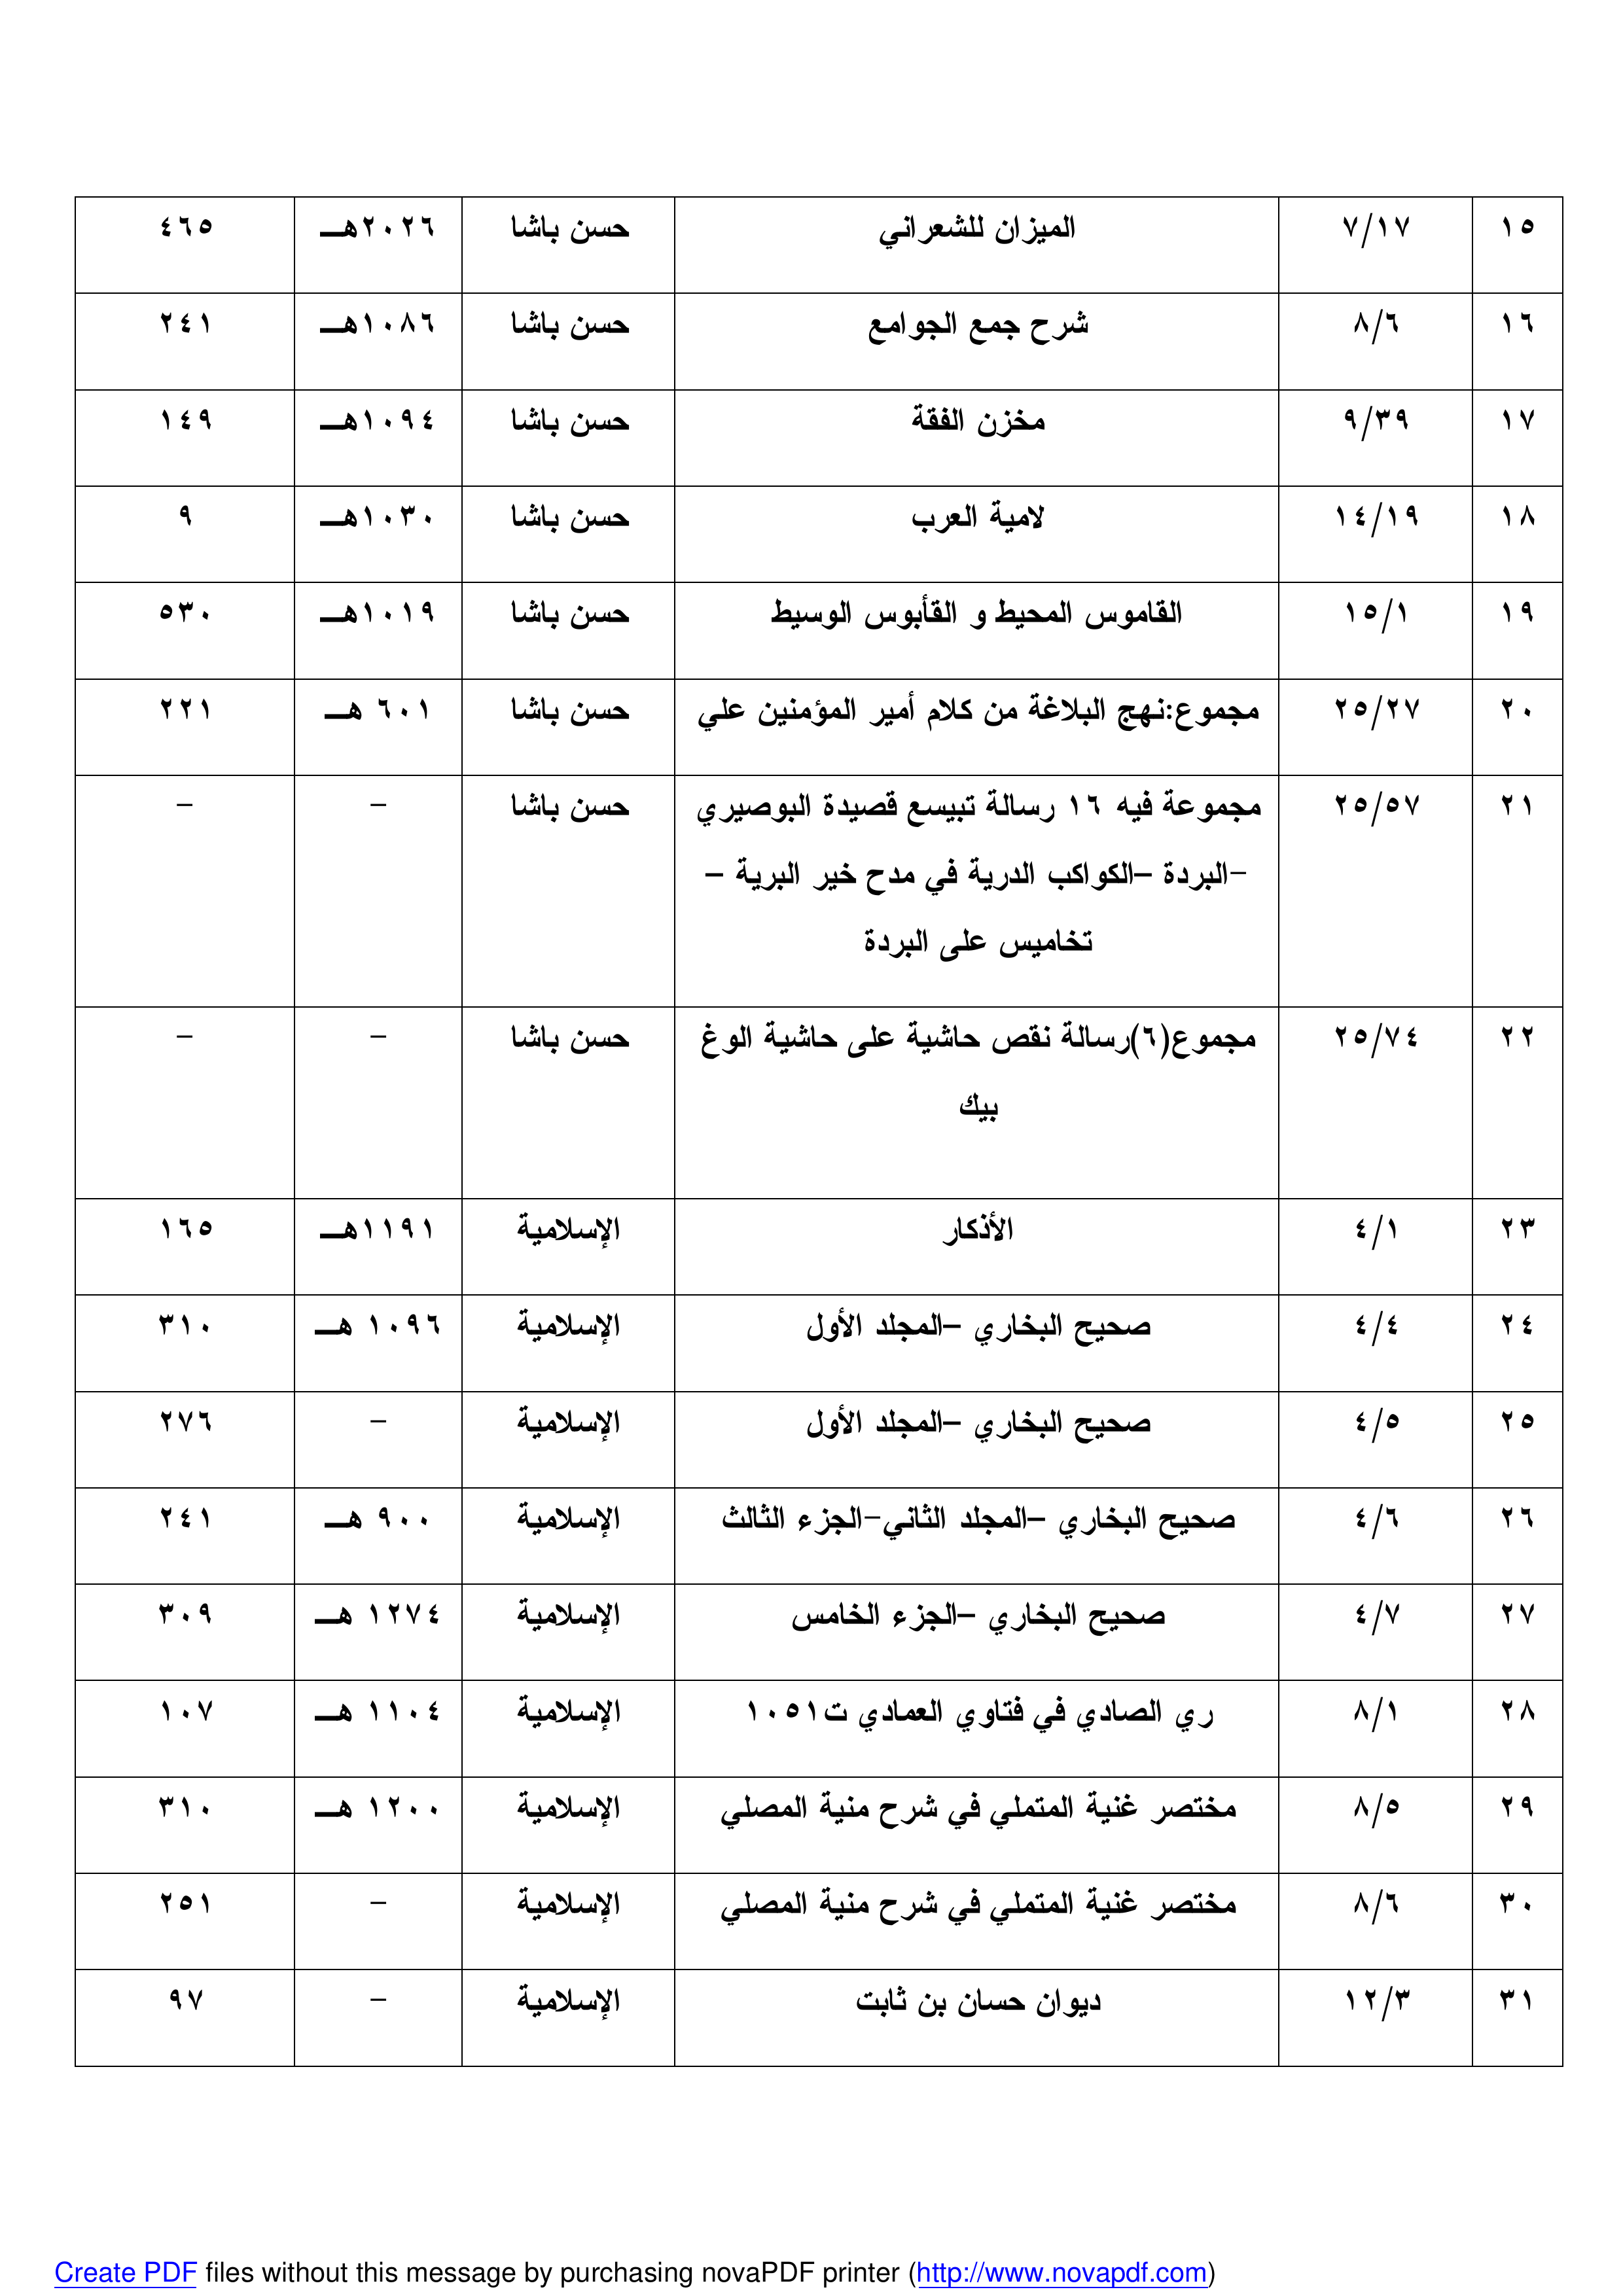 ١٥ ٧/١٧ الميزان للشعراني حسن باشا ٢٠٢٦هـ ٤٦٥
١٦ ٨/٦ شرح جمع الجوامع حسن باشا ١٠٨٦هـ ٢٤١
١٧ ٩/٣٩ مخزن الفقة حسن باشا ١٠٩٤هـ ١٤٩
١٨ ١٤/١٩ لامية العرب حسن باشا ١٠٣٠هـ ٩
١٩ ١٥/١ القاموس المحيط و القأبوس الوسيط حسن باشا ١٠١٩هـ ٥٣٠
٢٠ ٢٥/٢٧ مجموع:نهج البلاغة من كلام أمير المؤمنين علي حسن باشا ٦٠١ هـ ٢٢١
٢١ ٢٥/٥٧ مجموعة فيه ١٦ رسالة تبيسع قصيدة البوصيري حسن باشا – –
-البردة –الكواكب الدرية في مدح خير البرية –
تخاميس على البردة
٢٢ ٢٥/٧٤ مجموع(٦)رسالة نقص حاشية على حاشية الوغ حسن باشا – –
بيك
٢٣ ٤/١ الأذكار الإسلامية ١١٩١هـ ١٦٥
٢٤ ٤/٤ صحيح البخاري –المجلد الأول الإسلامية ١٠٩٦ هـ ٣١٠
٢٥ ٤/٥ صحيح البخاري –المجلد الأول الإسلامية – ٢٧٦
٢٦ ٤/٦ صحيح البخاري –المجلد الثاني-الجزء الثالث الإسلامية ٩٠٠ هـ ٢٤١
٢٧ ٤/٧ صحيح البخاري –الجزء الخامس الإسلامية ١٢٧٤ هـ ٣٠٩
٢٨ ٨/١ ري الصادي في فتاوي العمادي ت١٠٥١ الإسلامية ١١٠٤ هـ ١٠٧
٢٩ ٨/٥ مختصر غنية المتملي في شرح منية المصلي الإسلامية ١٢٠٠ هـ ٣١٠
٣٠ ٨/٦ مختصر غنية المتملي في شرح منية المصلي الإسلامية – ٢٥١
٣١ ١٢/٣ ديوان حسان بن ثابت الإسلامية – ٩٧
Create PDF files without this message by purchasing novaPDF printer (http://www.novapdf.com)